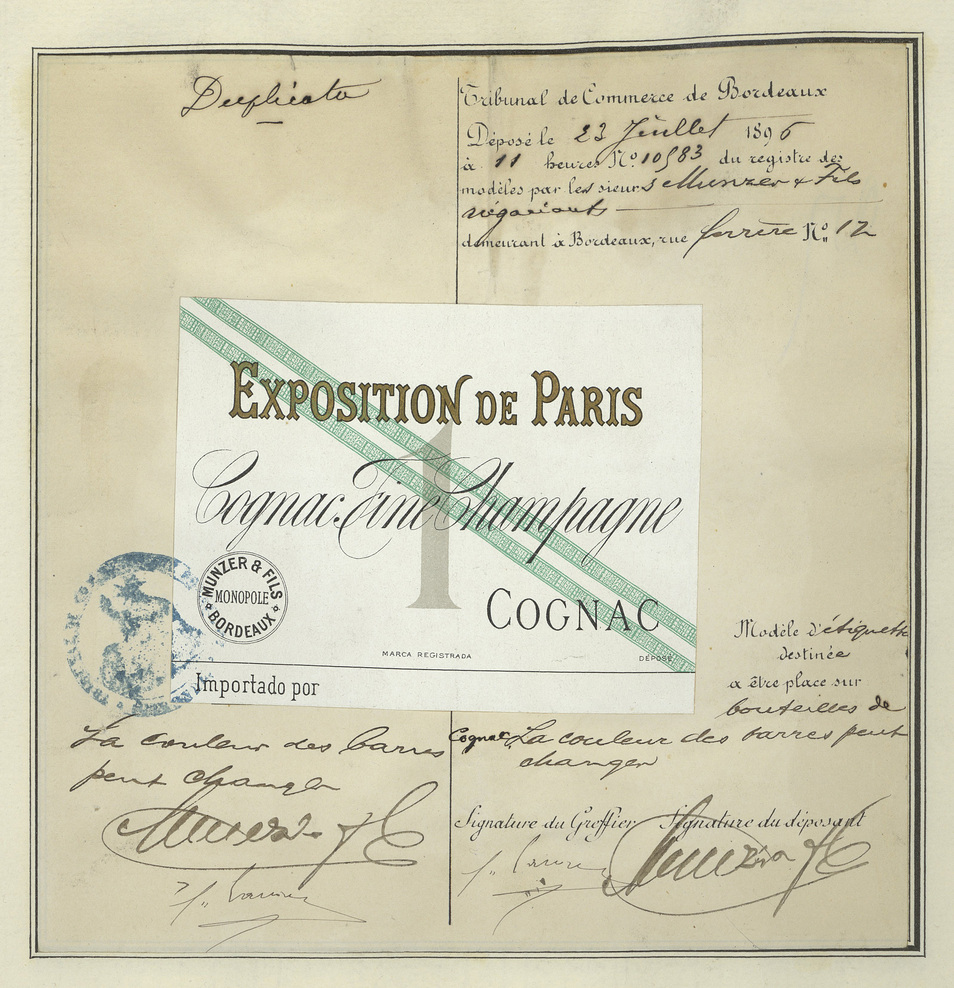 Duplicata
Tribunal de Commerce de Bordeaux
Déposé le 23 Juillet 1896
à 11 heures Nº 10583 du registre des
modèles par les sieurs Munzer & Fils
négociants
demeurant à Bordeaux, rue ferrère Nº 12
EXPOSITION DE PARIS
1
Cognac Fine Champagne
MUNZER & FILS
MONOPOLE
BORDEAUX
COGNAC
MARCA REGISTRADA
DÉPOSÉ
Importado por
Modèle d'étiquette
destinée
a être place sur
bouteilles de
Cognac La couleur des barres peut
changer
La couleur des barres
peut changer
Signature du Greffier Signature du déposant